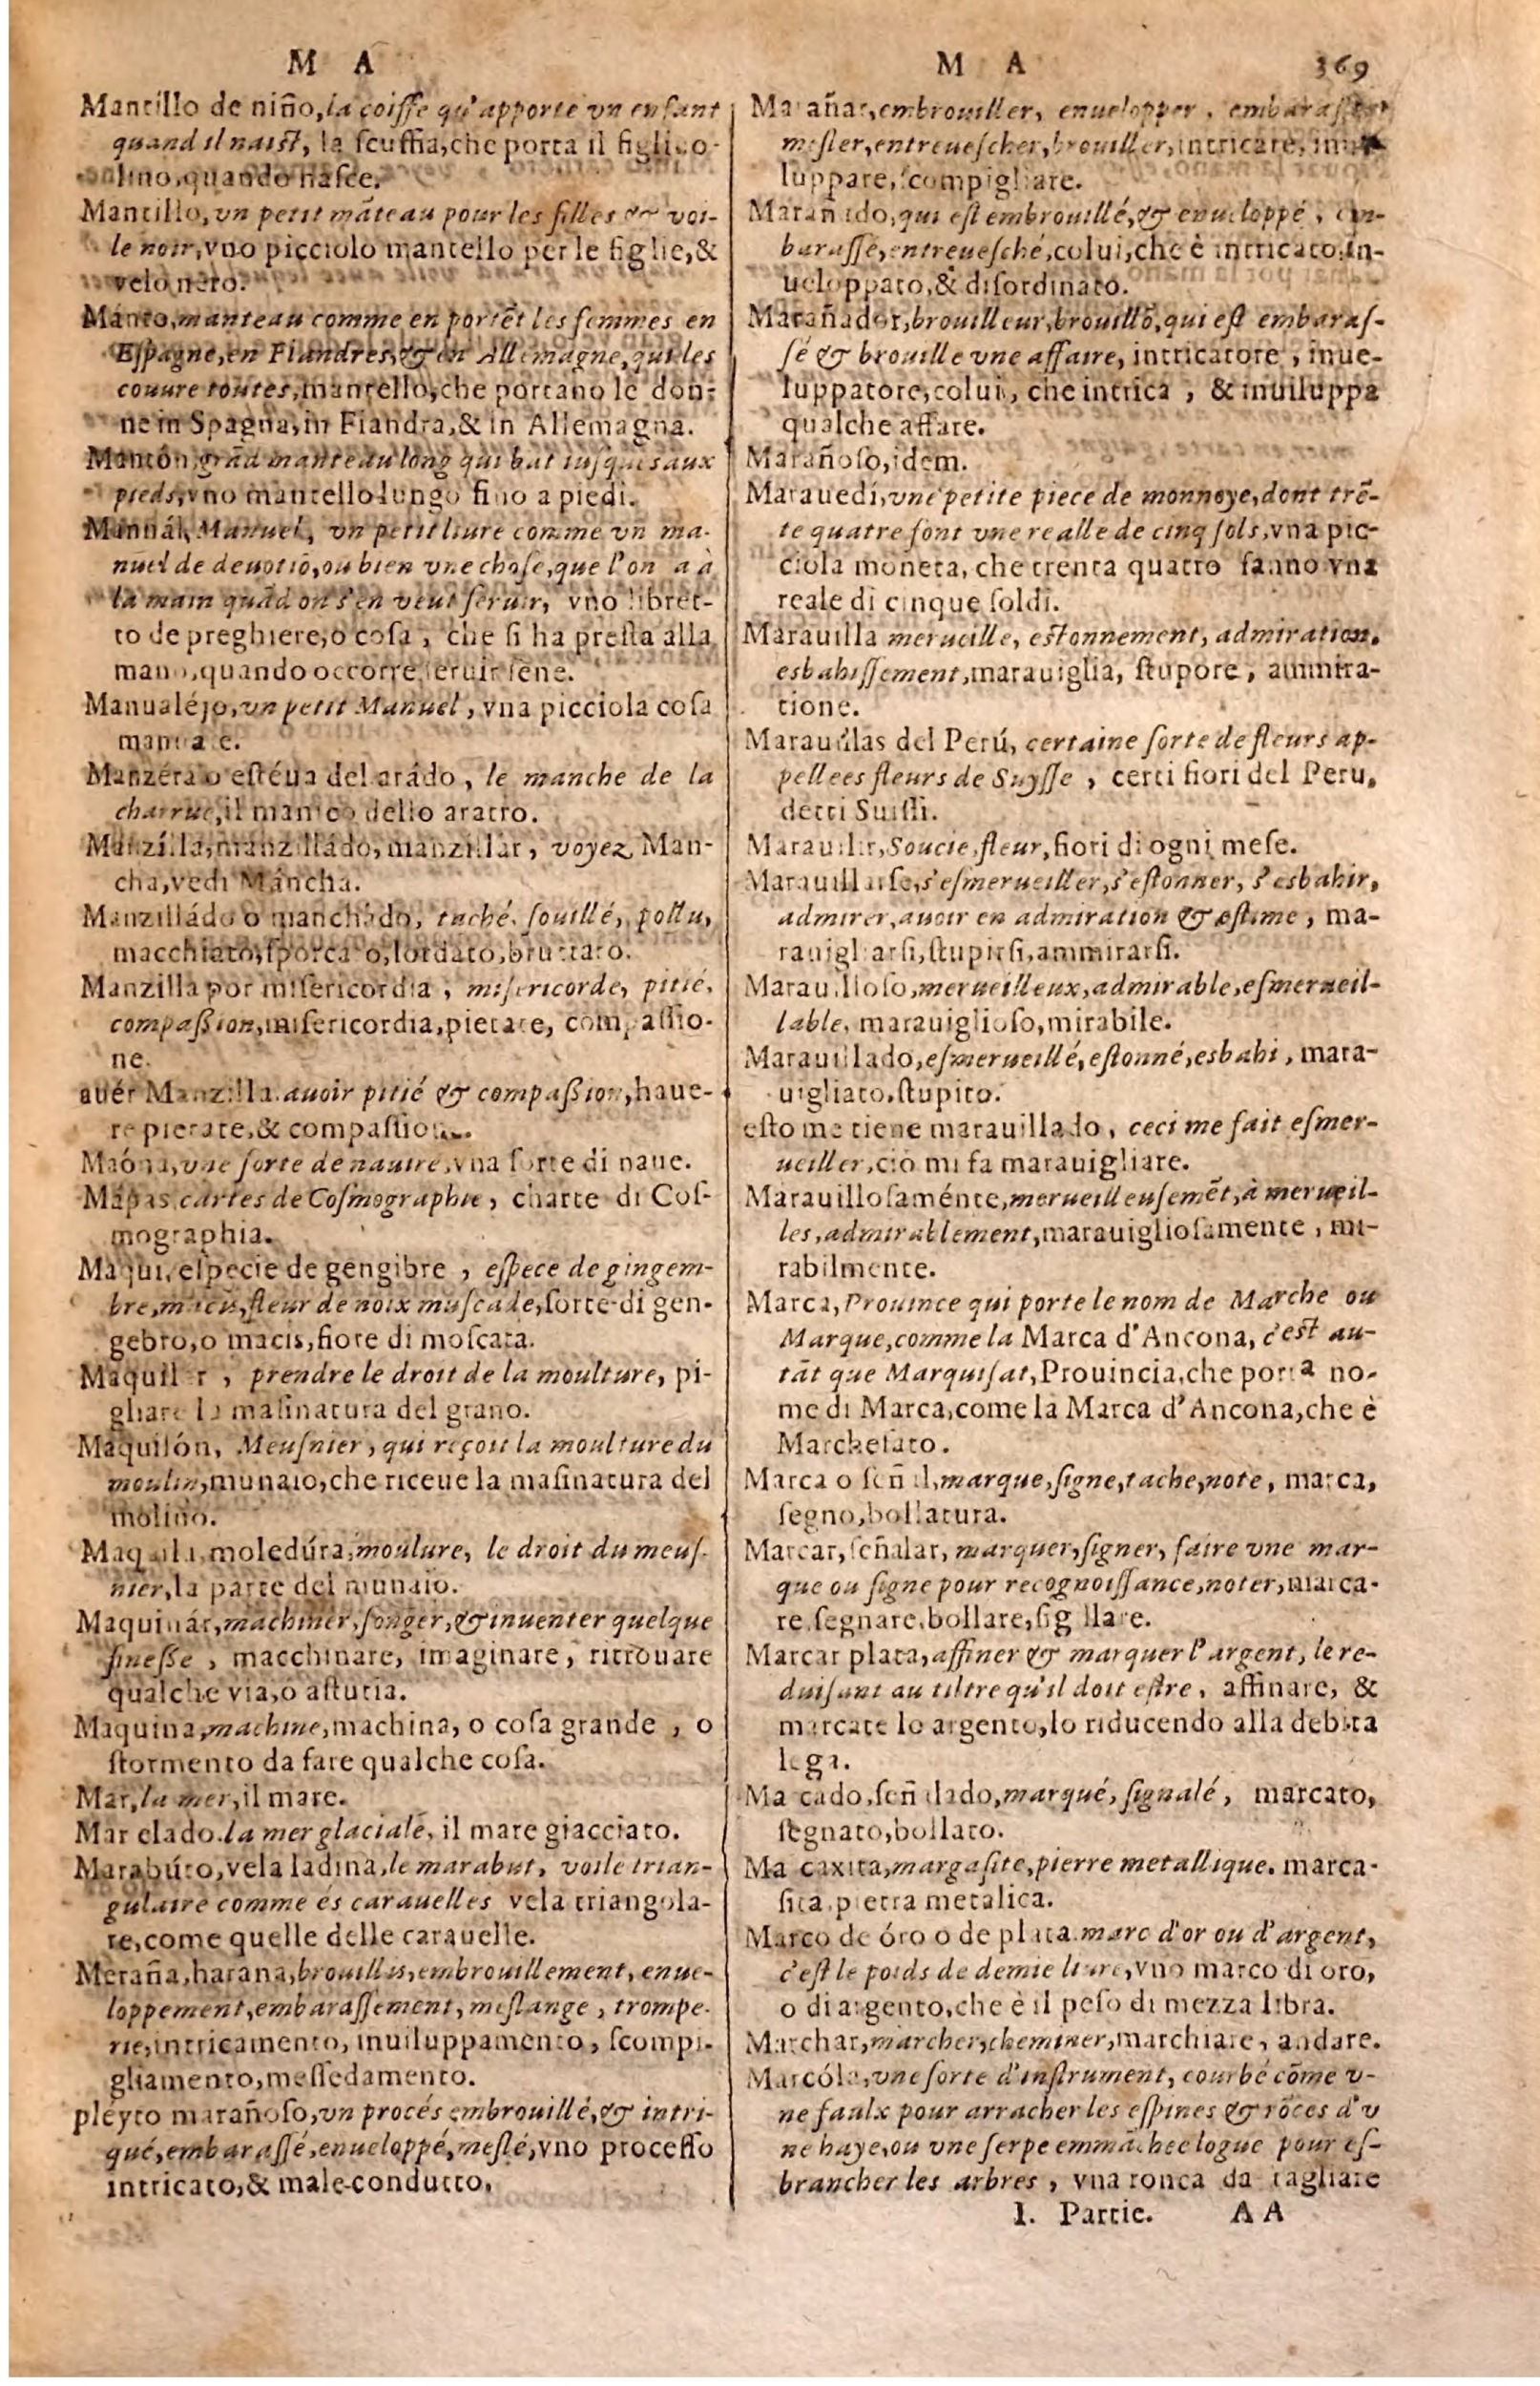 M A
Mantíllo de niño, la coiffe qu'apporte vn enfant
quand il naist, la scuffia, che porta il figlio-
lino, quando nasce.
Mantillo, vn petit mãteau pour les filles & voi-
le noir, vno picciolo mantello per le figlie, &
velo nero.
Mánto, manteau comme en portẽt les femmes en
Espagne, en Flandres, & en Allemagne, qui les
couure toutes, mantello, che portano le don-
ne in Spagna, in Fiandra, & in Allemagna.
Mantón, grãd manteau long qui bat iusques aux
pieds, vno mantello lungo fino a piedi.
Manuál, Manuel, vn petit liure comme vn ma-
nuel de deuotiõ, ou bien vne chose, que l'on a à
la main quãd on s'en veut seruir, vno libret-
to de preghiere, o cosa, che si ha presta alla
mano, quando occorre seruirsene.
Manualéjo, vn petit Manuel, vna picciola cosa
manuale.
Manzéra o estéua del arádo, le manche de la
charrue, il manico dello aratro.
Manzílla, manzilládo, manzillár, voyez Man-
cha, vedi Máncha.
Manzilládo o manchádo, taché, souillé, pollu,
macchiato, sporcato, lordato, bruttato.
Manzilla por misericordia, misericorde, pitié,
compaßion, misericordia, pietate, compassio-
ne.
auér Manzilla. auoir pitié & compaßion, haue-
re pietate, & compassione.
Maóna, vne sorte de nauire, vna sorte di naue.
Mápas, cartes de Cosmographie, charte di Cos-
mographia.
Maqui, especie de gengibre, espece de gingem-
bre, macis, fleur de noix muscade, sorte di gen-
gebro, o macis, fiore di moscata.
Maquilar, prendre le droit de la moulture, pi-
gliare la masinatura del grano.
Maquilón, Meusnier, qui reçoit la moulture du
moulin, munaio, che riceue la masinatura del
molino.
Maquila, moledúra, moulure, le droit du meus-
nier, la parte del munaio.
Maquinár, machiner, songer, & inuenter quelque
finesse, macchinare, imaginare, ritrouare
qualche via, o astutia.
Maquina, machine, machina, o cosa grande, o
stormento da fare qualche cosa.
Mar, la mer, il mare.
Mar elado. la mer glaciale, il mare giacciato.
Marabúto, vela ladina, le marabut, voile trian-
gulaire comme és carauelles vela triangola-
re, come quelle delle carauelle.
Meraña, harana, brouillis, embrouillement, enue-
loppement, embarassement, meslange, trompe-
rie, intricamento, inuiluppamento, scompi-
gliamento, messedamento.
pléyto marañoso, vn procés embrouillé, & intri-
qué, embarassé, enueloppé, meslé, vno processo
intricato, & male-condutto.
M A 369
Marañar, embrouiller, enuelopper, embarasser
mesler, entreuescher, brouiller, intricare,
luppare, scompigliare.
Marañado, qui est embrouillé, & enueloppé, em-
barassé, entreuesché, colui, che è intricato, in-
ueloppato, & disordinato.
Marañador, brouilleur, brouillõ, qui est embaras-
sé & brouille vne affaire, intricatore, inue-
luppatore, colui, che intrica, & inuiluppa
qualche affare.
Marañoso, idem.
Marauedí, vne petite piece de monnoye, dont trẽ-
te quatre font vne realle de cinq sols, vna pic-
ciola moneta, che trenta quatro fanno vna
reale di cinque soldi.
Marauilla merueille, estonnement, admiration,
esbahissement, marauiglia, stupore, ammira-
tione.
Marauillas del Perú, certaine sorte de fleurs ap-
pellees fleurs de Suysse, certi fiori del Peru,
detti Suissi.
Marauillr, Soucie, fleur, fiori di ogni mese.
Marauillarse, s'esmerueiller, s'estonner, s'esbahir,
admirer, auoir en admiration & estime, ma-
rauigliarsi, stupirsi, ammirarsi.
Marauilloso, merueilleux, admirable, esmerueil-
lable, marauiglioso, mirabile.
Marauillado, esmerueillé, estonné, esbahi, mara-
uigliato, stupito.
esto me tiene marauillado, ceci me fait esmer-
ueiller, ciò mi fa marauigliare.
Marauillosaménte, merueilleusemẽt, à merueil-
les, admirablement, marauigliosamente, mi-
rabilmente.
Marca, Prouince qui porte le nom de Marche ou
Marque, comme la Marca d'Ancona, c'est au-
tãt que Marquisat, Prouincia, che porta no-
me di Marca, come la Marca d'Ancona, che è
Marchesato.
Marca o señal, marque, signe, tache, note, marca,
segno, bollatura.
Marcar, señalar, marquer, signer, faire vne mar-
que ou signe pour recognoissance, noter, marca-
re, segnare, bollare, sigillare.
Marcar plata, affiner & marquer l'argent, le re-
duisant au tiltre qu'il doit estre, affinare, &
marcate lo argento, lo riducendo alla debita
lega.
Marcado, señalado, marqué, signalé, marcato,
segnato, bollato.
Marcaxita, margasite, pierre metallique. marca-
sita, pietra metalica.
Marco de óro o de plata. marc d'or ou d'argent,
c'est le poids de demie liure, vno marco di oro,
o di argento, che è il peso di mezza libra.
Marchar, marcher, cheminer, marchiare, andare.
Marcóla, vne sorte d'instrument, courbé cõme v-
ne faulx pour arracher les espines & rõces d'v
ne haye, ou vne serpe emmãchee logue pour es-
brancher les arbres, vna ronca da tagliare
I. Partie. A A